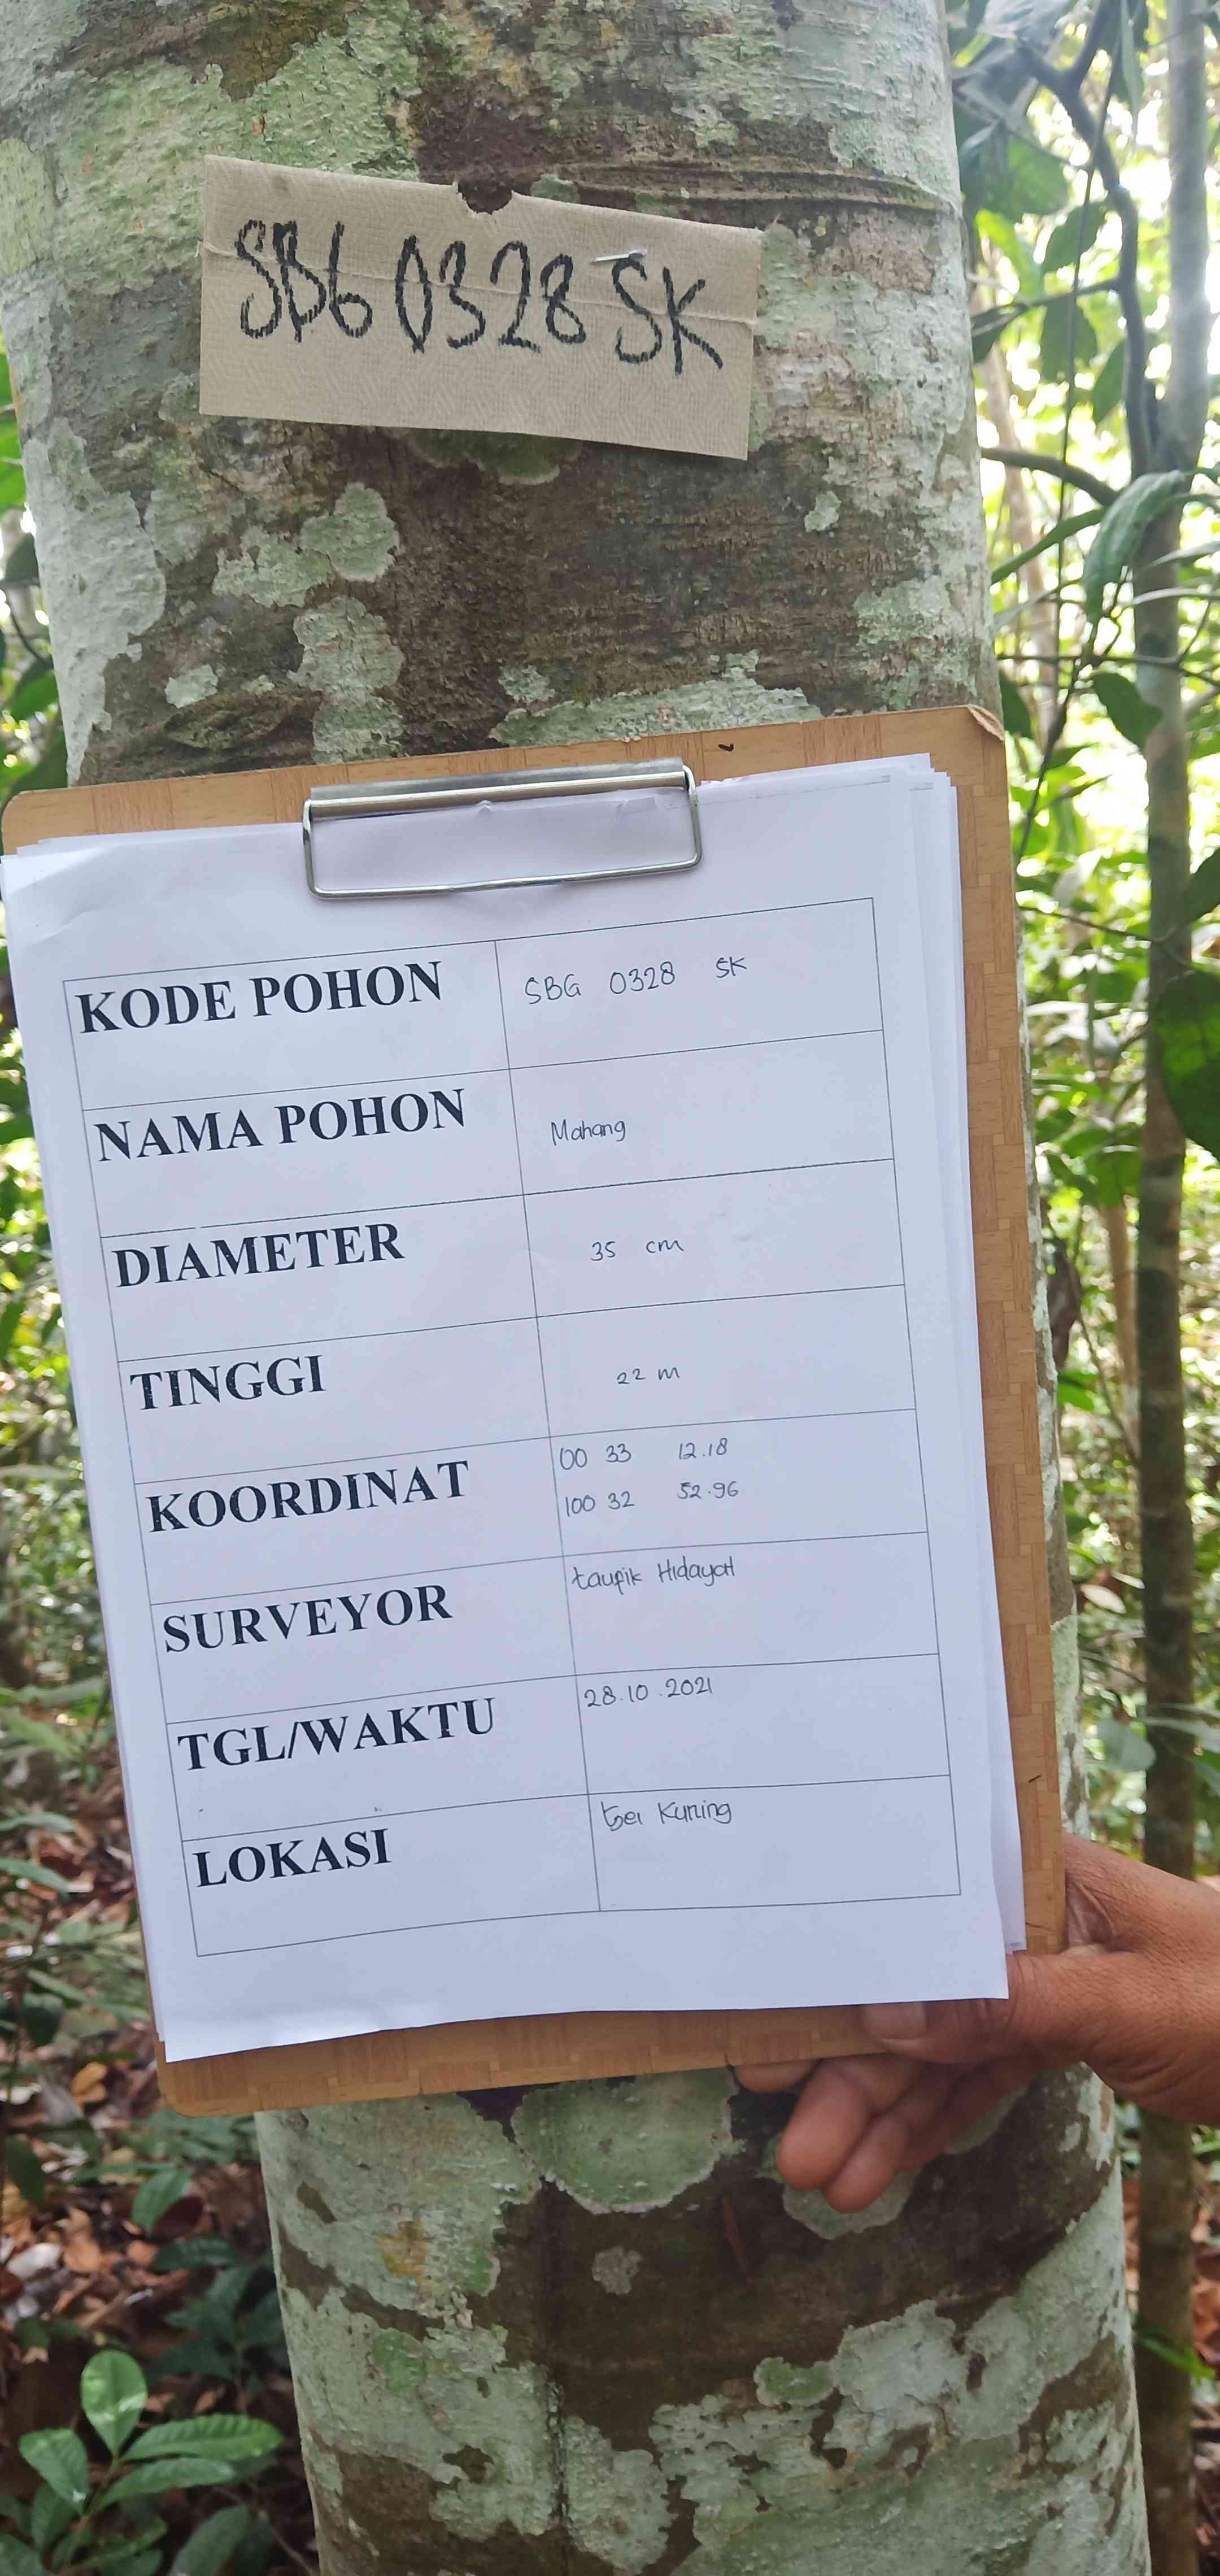 SBG 0328 SK
KODE POHON SBG 0328 SK
NAMA POHON Mahang
DIAMETER 35 cm
TINGGI 22 m
KOORDINAT 00 33 12.18
100 32 52.96
SURVEYOR taufik Hidayat
TGL/WAKTU 28.10.2021
LOKASI Kuning